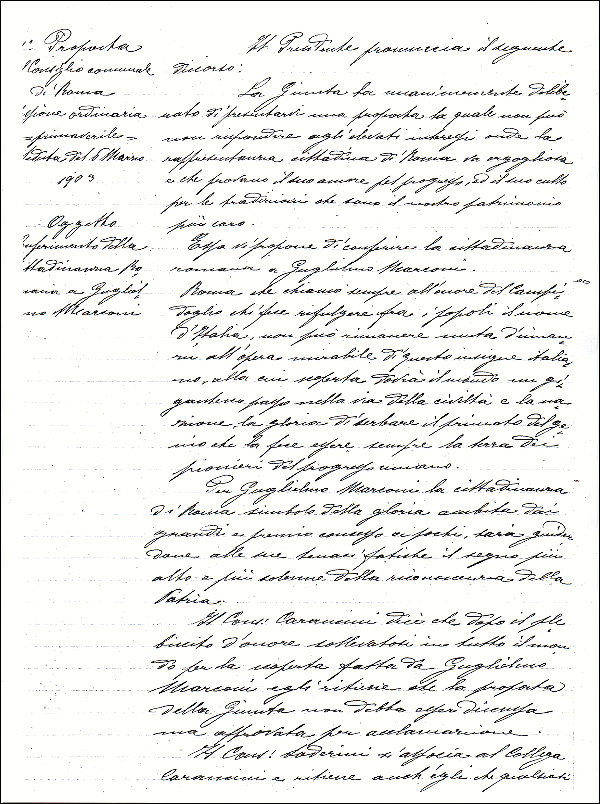 Proposta
Consiglio comunale
di Roma
ordinaria
= primaverile =
Seduta del 6 Marzo
1903
Oggetto
Conferimento della
cittadinanza Ro-
mana a Gugliel-
mo Marconi
Il Presidente pronuncia il seguente
discorso:
La Giunta ha unanimemente delibe-
rato di presentarvi una proposta la quale non può
non rispondere agli elevati interessi onde la
rappresentanza cittadina di Roma va orgogliosa
e che provano il suo amore pel progresso, ed il suo culto
per le tradizioni che sono il nostro patrimonio
più caro.
Essa si propone di conferire la cittadinanza
romana a Guglielmo Marconi.
Roma che chiamò sempre all'onore del Campi-
doglio chi fece rifulgere fra i popoli il nome
d'Italia, non può rimanere muta dinan-
zi all'opera mirabile di questo insigne italia-
no, alla cui scoperta dovrà il mondo un gi-
gantesco passo nella via della civiltà e la na-
zione la gloria di serbare il primato del ge-
nio che la fece essere sempre la terra dei
pionieri del progresso umano.
Per Guglielmo Marconi la cittadinanza
di Roma simbolo della gloria ambita dai
grandi e premio concesso a pochi, sarà guider-
done alle sue tenaci fatiche il segno più
alto e più solenne della riconoscenza della
Patria.
Il Cons: Caransini dice che dopo il ple
biscito d'onore sollevatosi in tutto il mon
do per la scoperta fatta da Guglielmo
Marconi egli ritiene che la proposta
della Giunta non debba esser discussa
ma approvata per acclamazione.
Il Cons: Soderini si associa al Collega
Caransini e ritiene anch'egli che